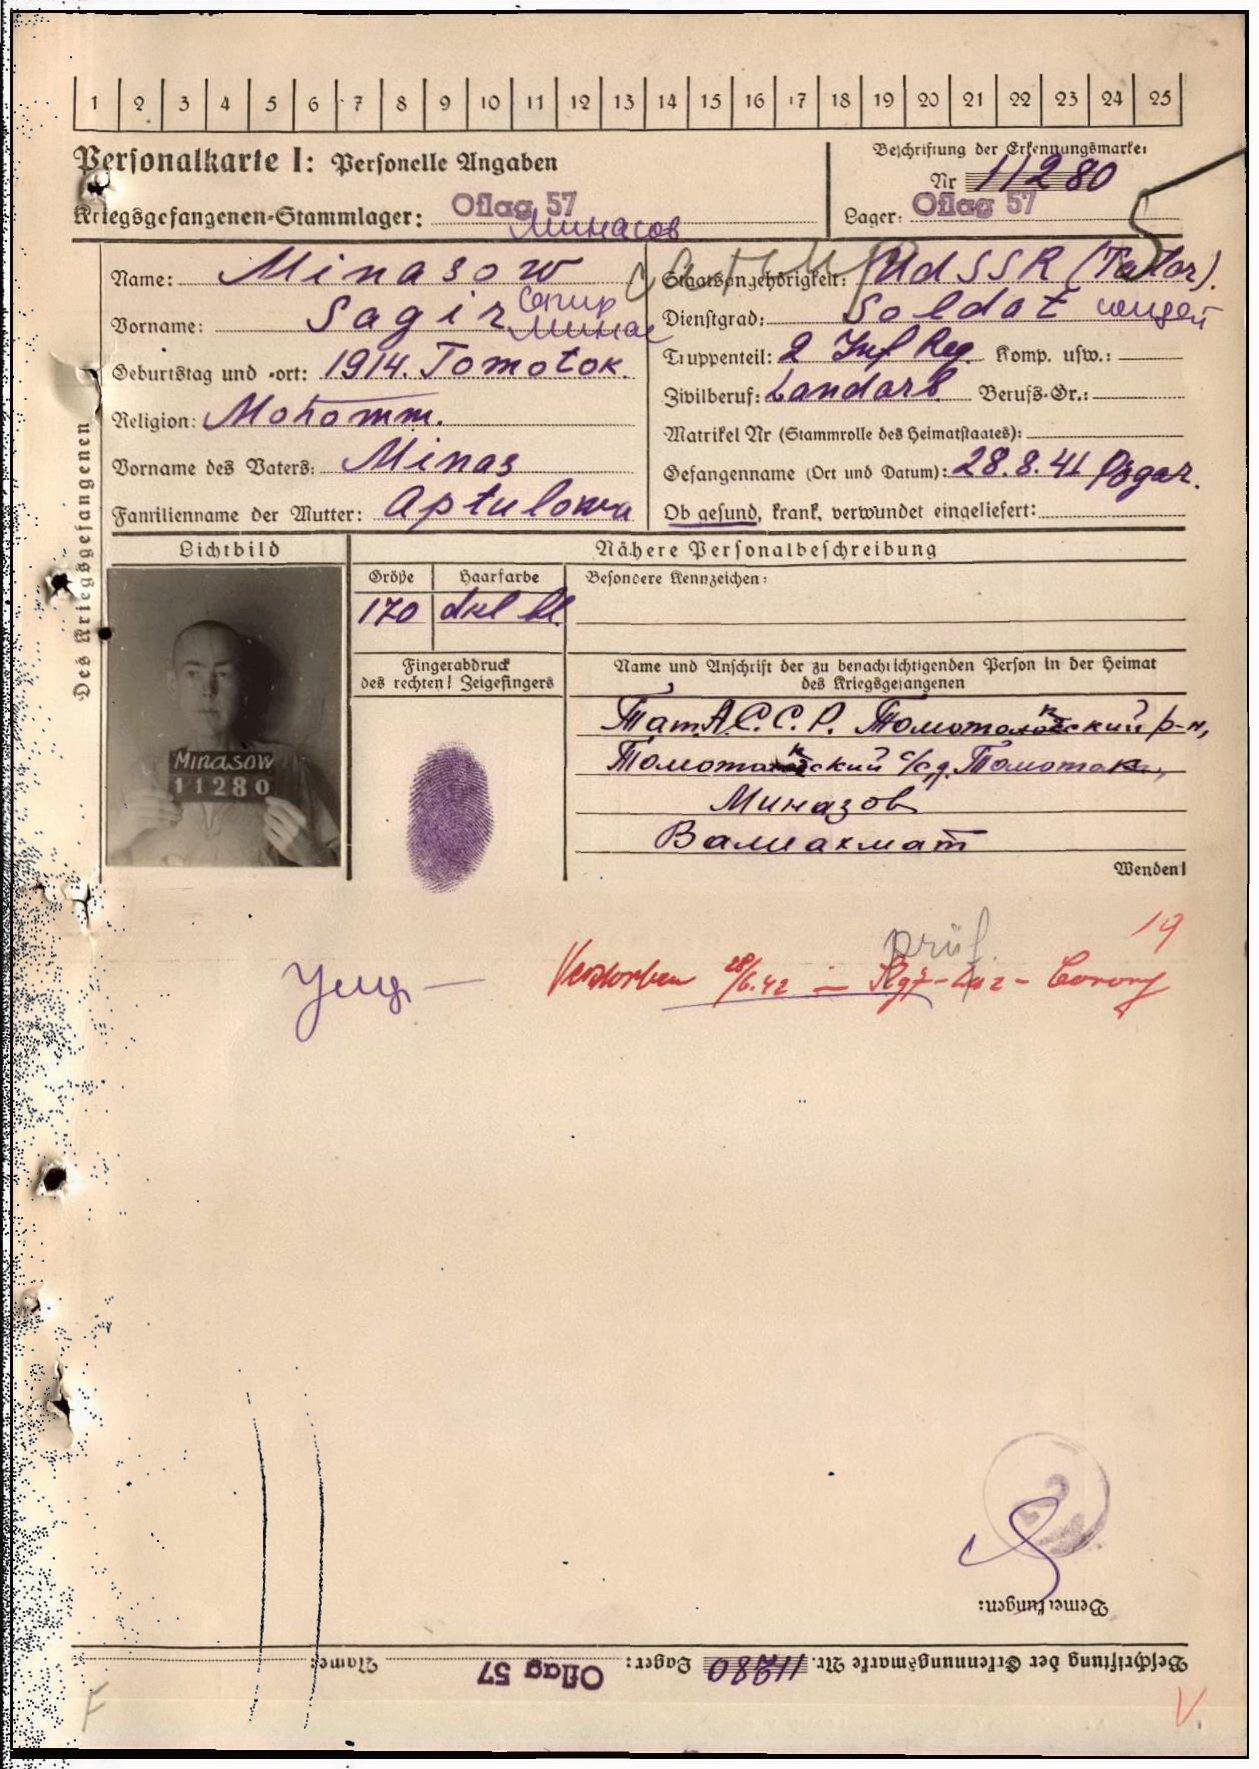 1 2 3 4 5 6 7 8 9 10 11 12 13 14 15 16 17 18 19 20 21 22 23 24 25
Personalkarte I: Personelle Angaben
Beschriftung der Erkennungsmarke:
Nr 11280
Kriegsgefangenen-Stammlager: Oflag 57
Lager: Oflag 57
Минасов
Des Kriegsgefangenen
Name: Minasow
Сагир
Vorname: Sagir
Минас
Geburtstag und -ort: 1914. Tomotok.
Religion: Mohamm.
Vorname des Vaters: Minas
Familienname der Mutter: Aptulowa
Staatsangehörigkeit: UdSSR (Tatar).
Dienstgrad: Soldat
Truppenteil: 2 Inf Reg. Komp. usw.:
Zivilberuf: Landarb. Berufs-Gr.:
Matrikel Nr (Stammrolle des Heimatstaates):
Gefangenname (Ort und Datum): 28.8.41
Ob gesund, krank, verwundet eingeliefert:
Lichtbild
Nähere Personalbeschreibung
Größe
Haarfarbe
Besondere Kennzeichen:
170
dkl bl.
Fingerabdruck
des rechten! Zeigefingers
Name und Anschrift der zu benachrichtigenden Person in der Heimat
des Kriegsgefangenen
MINASOW
11280
Тат.А.С.С.Р. р-н,
с/с д. Томотак,
Миназов
Валиахмат
Wenden!
19
prüf.
Verstorben 28/6.42 - Kgf-Laz-
Bemerkungen:
Beschriftung der Erkennungsmarke Nr. 11280 Lager: Oflag 57 Name:
F
V.